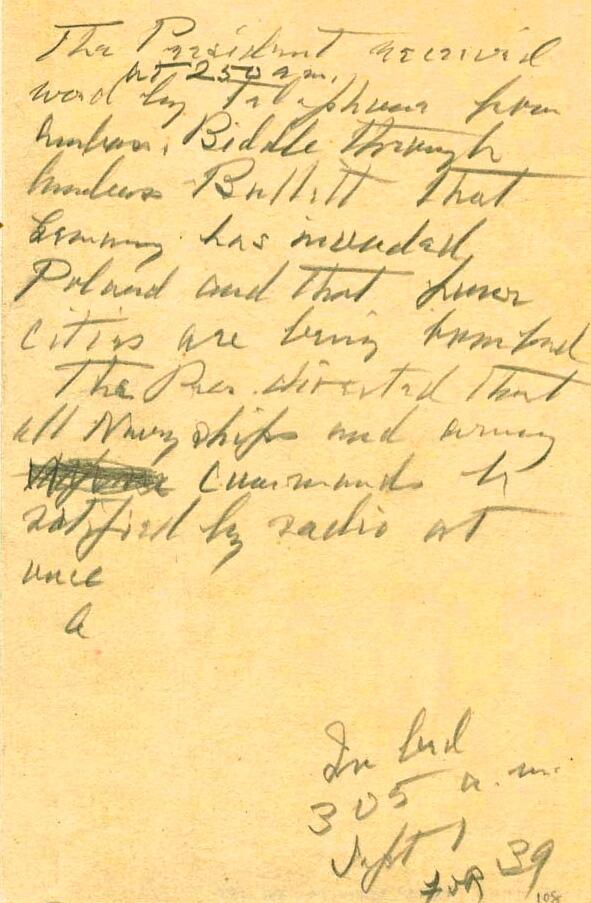 The President received
at 2 50 a.m.
word by telephone from
Ambas. Biddle through
Ambas Bullitt that
Germany has invaded
Poland and that four
cities are being bombed
The Pres. directed that
all Navy ships and army
commands be
notified by radio at
once
a
In bed
3 05 a.m.
Sept 1 39
FDR
108